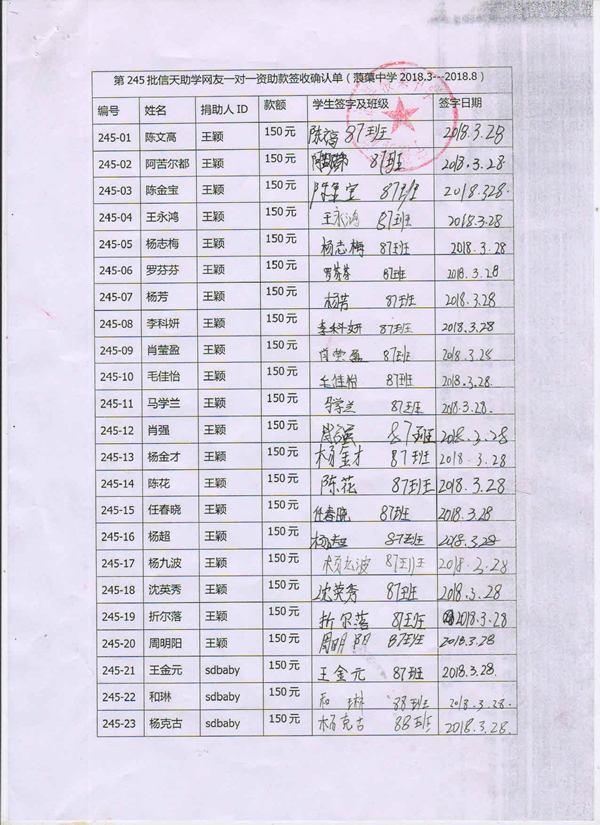 第 245 批信天助学网友一对一资助款签收确认单（蒗蕖中学 2018.3---2018.8）
编号 姓名 捐助人 ID 款额 学生签字及班级 签字日期
245-01 陈文高 王颖 150 元 陈文高 87班 2018.3.28
245-02 阿苦尔都 王颖 150 元 87班 2018.3.28
245-03 陈金宝 王颖 150 元 陈金宝 87班 2018.328.
245-04 王永鸿 王颖 150 元 王永鸿 87班 2018.3.28
245-05 杨志梅 王颖 150 元 杨志梅 87班 2018.3.28
245-06 罗芬芬 王颖 150 元 罗芬芬 87班 2018.3.28
245-07 杨芳 王颖 150 元 杨芳 87班 2018.3.28
245-08 李科妍 王颖 150 元 李科妍 87班 2018.3.28
245-09 肖莹盈 王颖 150 元 肖莹盈 87班 2018.3.28
245-10 毛佳怡 王颖 150 元 毛佳怡 87班 2018.3.28.
245-11 马学兰 王颖 150 元 马学兰 87班 2018.3.28.
245-12 肖强 王颖 150 元 肖强 87班 2018.3.28
245-13 杨金才 王颖 150 元 杨金才 87班 2018.3.28
245-14 陈花 王颖 150 元 陈花 87班 2018.3.28
245-15 任春晓 王颖 150 元 任春晓 87班 2018.3.28
245-16 杨超 王颖 150 元 杨超 87班 2018.3.28
245-17 杨九波 王颖 150 元 杨九波 87班 2018.3.28
245-18 沈英秀 王颖 150 元 沈英秀 87班 2018.3.28
245-19 折尔落 王颖 150 元 折尔落 87班 2018.3.28
245-20 周明阳 王颖 150 元 周明阳 87班 2018.3.28
245-21 王金元 sdbaby 150 元 王金元 87班 2018.3.28.
245-22 和琳 sdbaby 150 元 和琳 88班 2018.3.28.
245-23 杨克古 sdbaby 150 元 杨克古 88班 2018.3.28.